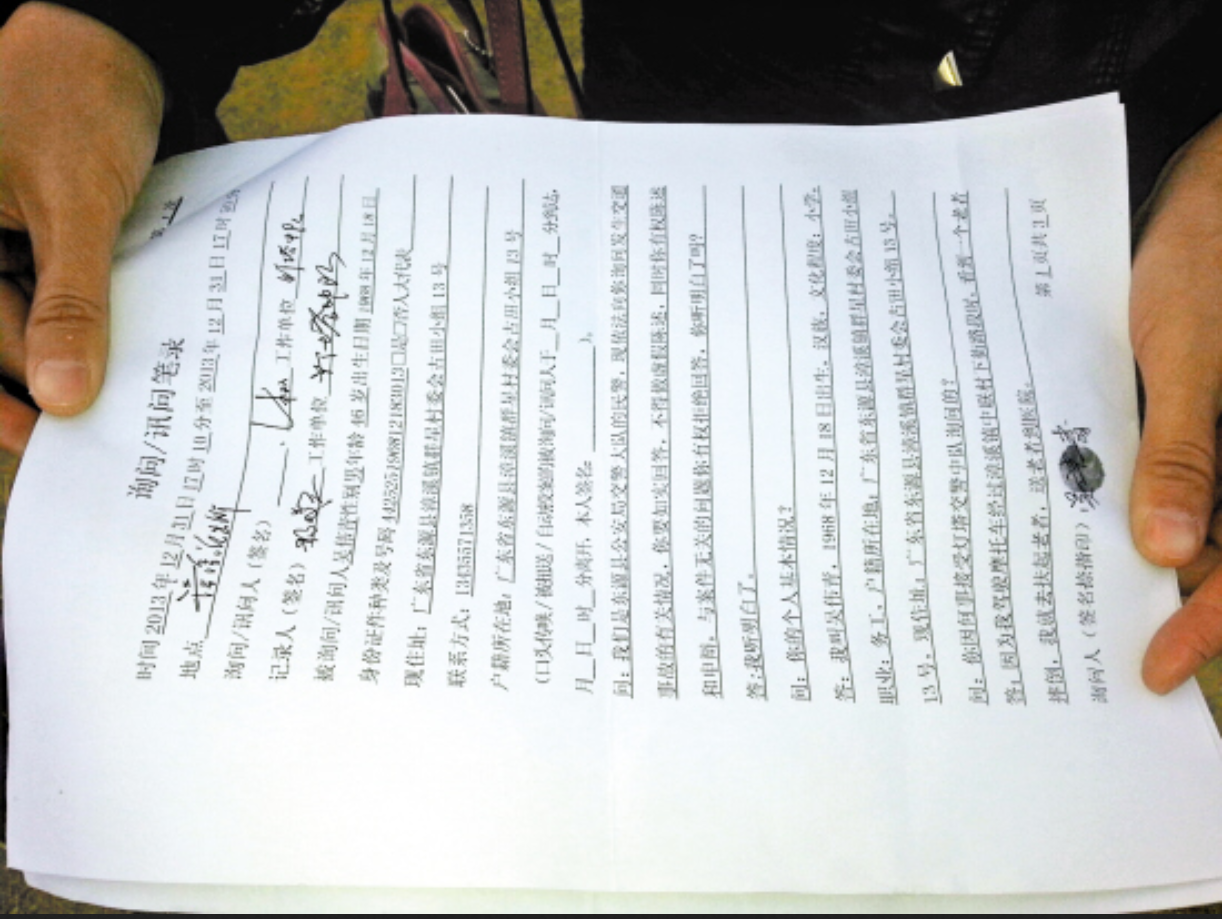 第 1 次
询问/讯问笔录
时间 2013 年 12 月 31 日 17 时 10 分至 2013 年 12 月 31 日 17 时 50 分
地点
询问/讯问人（签名） 工作单位
记录人（签名） 工作单位
被询问/讯问人 吴伟青 性别 男 年龄 46 岁 出生日期 1968 年 12 月 18 日
身份证件种类及号码 □是□否人大代表
现住址：广东省东源县漳溪镇群星村委会古田小组 13 号
联系方式：
户籍所在地：广东省东源县漳溪镇群星村委会古田小组 13 号
（口头传唤/被扭送/自动投案的被询问/讯问人于__月__日__时__分到达，
月__日__时__分离开，本人签名： ）。
问：我们是东源县公安局交警大队的民警，现依法向你询问发生交通
事故的有关情况，你要如实回答，不得做虚假陈述，同时你有权陈述
和申辩，与案件无关的问题你有权拒绝回答，你听明白了吗？
答：我听明白了。
问：你的个人基本情况？
答：我叫吴伟青，1968 年 12 月 18 日出生，汉族，文化程度：小学，
职业：务工，户籍所在地：广东省东源县漳溪镇群星村委会古田小组
13 号，现住址：广东省东源县漳溪镇群星村委会古田小组 13 号。
问：你因何事接受灯塔交警中队询问的？
答：因为我驾驶摩托车经过漳溪镇中联村下 路段时，看到一个老者
摔倒，我就去扶起老者，送老者到医院。
询问人（签名捺指印）： 第 1 页共 3 页